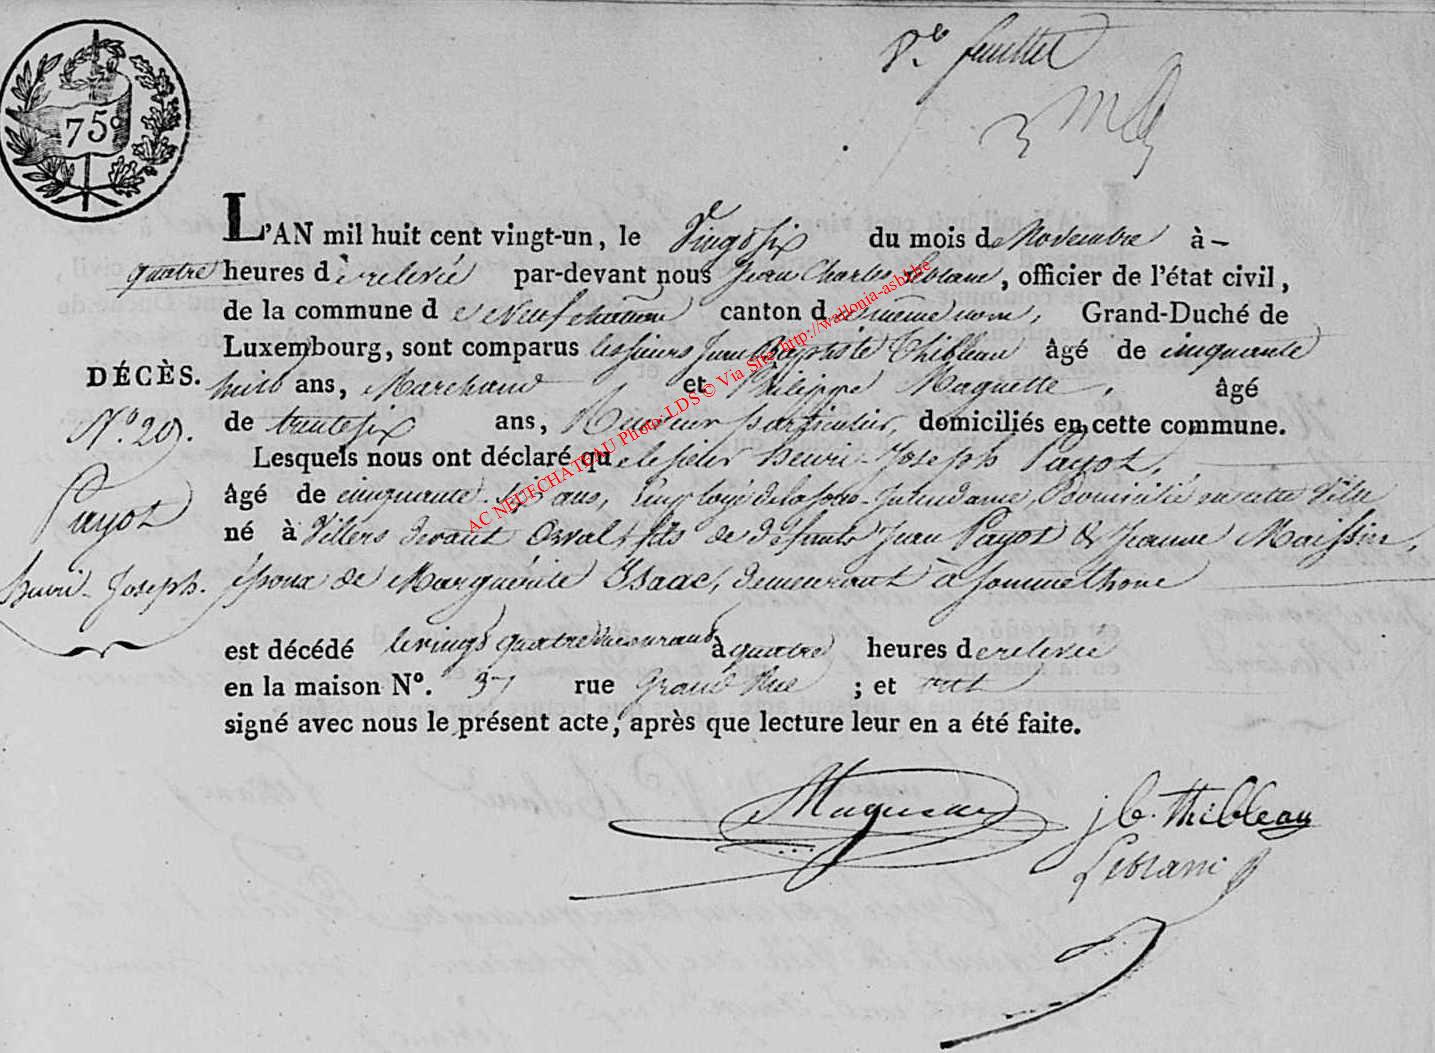 feuillet
75c
L'AN mil huit cent vingt-un, le Vingt six du mois de Novembre à
quatre heures de relevée par-devant nous Jean Charles Leblanc, officier de l'état civil,
de la commune de Neufchateau canton de même nom, Grand-Duché de
Luxembourg, sont comparus les sieurs Jean Baptiste Thibleau âgé de cinquante
DÉCÈS.
huit ans, Marchand et Philippe Maquette, âgé
N° 20.
de trente six ans, Receveur particulier, domiciliés en cette commune.
Lesquels nous ont déclaré que le sieur Henri-Joseph Payot,
Payot
Henri-Joseph.
âgé de cinquante six ans, Employé de la sous-Intendance, Domicilié en cette Ville
né à Villers devant Orval, fils de défunts Jean Payot & Jeanne Maissier,
époux de Marguérite Isaac, demeurant à Sommethone
est décédé le vingt quatre du courant à quatre heures de relevée
en la maison N°. 37 rue Grand Rue ; et ont
signé avec nous le présent acte, après que lecture leur en a été faite.
Maquette
j b. thibleau
Leblanc
AC NEUFCHATEAU Photo: LDS © Via Site http://wallonia-asbl.be